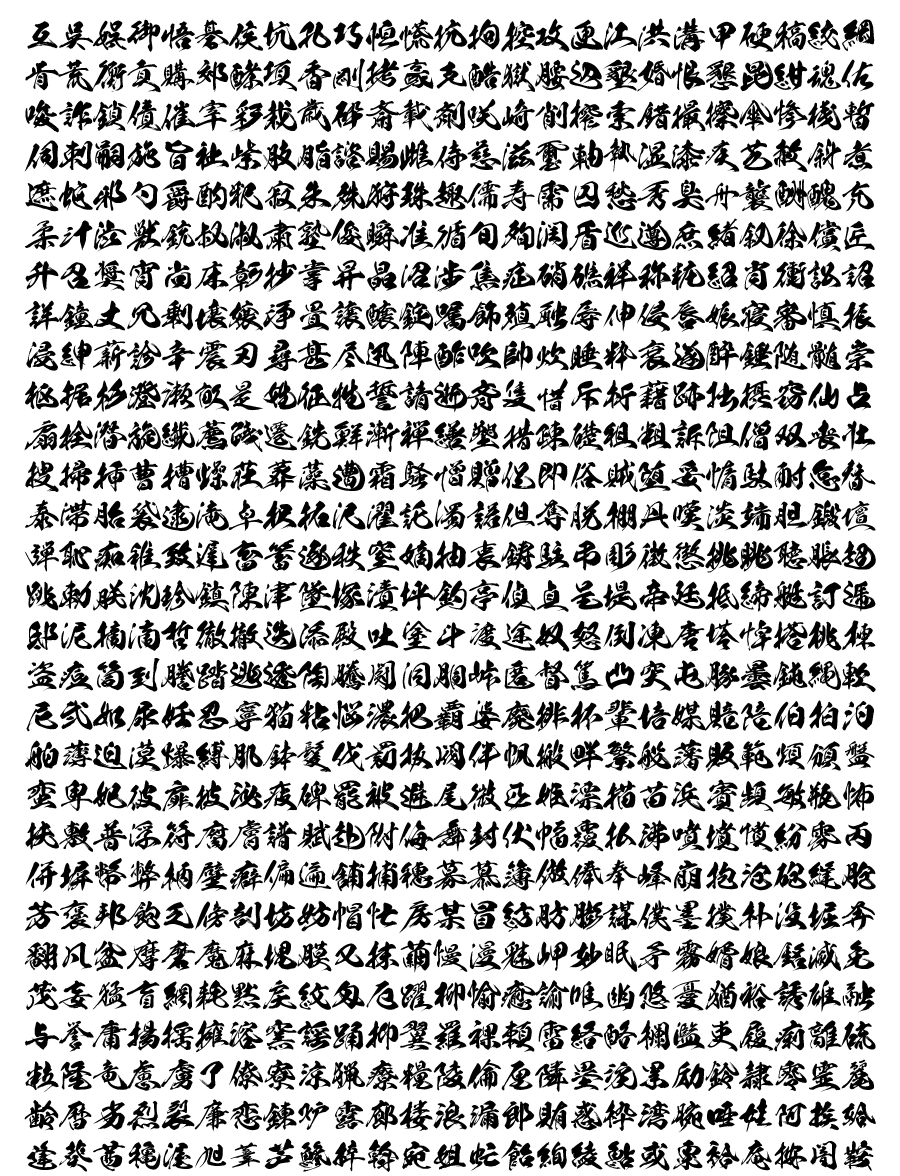 互呉娯御悟碁侯坑孔巧恒慌抗拘控攻更江洪溝甲硬稿絞綱
肯荒衡貢購郊酵項香剛拷豪克酷獄腰込墾婚恨懇昆紺魂佐
唆詐鎖債催宰彩栽歳砕斎載剤咲崎削搾索錯撮擦傘惨桟暫
伺刺嗣施旨祉紫肢脂諮賜雌侍慈滋璽軸執湿漆疾芝赦斜煮
遮蛇邪勺爵酌釈寂朱殊狩珠趣儒寿需囚愁秀臭舟襲酬醜充
柔汁渋獣銃叔淑粛塾俊瞬准循旬殉潤盾巡遵庶緒叙徐償匠
升召奨宵尚床彰抄掌昇晶沼渉焦症硝礁祥称粧紹肖衝訟詔
詳鐘丈冗剰壌嬢浄畳譲醸錠嘱飾殖辱伸侵唇娠寝審慎振
浸紳薪診辛震刃尋甚尽迅陣酢吹帥炊睡粋衰遂酔錘随髄崇
枢据杉澄瀬畝是姓征牲誓請逝斉隻惜斥析籍跡拙摂窃仙占
扇栓潜旋繊薦践遷銑鮮漸禅繕塑措疎礎租粗訴阻僧双喪壮
捜掃挿曹槽燥荘葬藻遭霜騒憎贈促即俗賊堕妥惰駄耐怠替
泰滞胎袋逮滝卓択拓沢濯託濁諾但奪脱棚丹嘆淡端胆鍛壇
弾恥痴稚致遅畜蓄逐秩窒嫡抽衷鋳駐弔彫徴懲挑眺聴脹超
跳勅朕沈珍鎮陳津墜塚漬坪釣亭偵貞呈堤帝廷抵締艇訂逓
邸泥摘滴哲徹撤迭添殿吐塗斗渡途奴怒倒凍唐塔悼搭桃棟
盗痘筒到謄踏逃透陶騰闘洞胴峠匿督篤凸突屯豚曇鈍縄軟
尼弐如尿妊忍寧猫粘悩濃把覇婆廃排杯輩培媒賠陪伯拍泊
舶薄迫漠爆縛肌鉢髪伐罰抜閥伴帆搬畔繁般藩販範煩頒盤
蛮卑妃彼扉披泌疲碑罷被避尾微匹姫漂描苗浜賓頻敏瓶怖
扶敷普浮符腐膚譜賦赴附侮舞封伏幅覆払沸噴墳憤紛雰丙
併塀幣弊柄壁癖偏遍舗捕穂募慕簿倣俸奉峰崩抱泡砲縫胞
芳褒邦飽乏傍剖坊妨帽忙房某冒紡肪膨謀僕墨撲朴没堀奔
翻凡盆摩磨魔麻埋膜又抹繭慢漫魅岬妙眠矛霧婿娘銘滅免
茂妄猛盲網耗黙戻紋匁厄躍柳愉癒諭唯幽悠憂猶裕誘雄融
与誉庸揚揺擁溶窯謡踊抑翼羅裸頼雷絡酪欄濫吏履痢離硫
粒隆竜慮虜了僚寮涼猟療糧陵倫厘隣塁涙累励鈴隷零霊麗
齢暦劣烈裂廉恋錬炉露廊楼浪漏郎賄惑枠湾腕唖娃阿挨姶
逢葵茜穐渥旭葦芦鯵梓斡宛姐虻飴絢綾鮎或粟袷庵按闇鞍